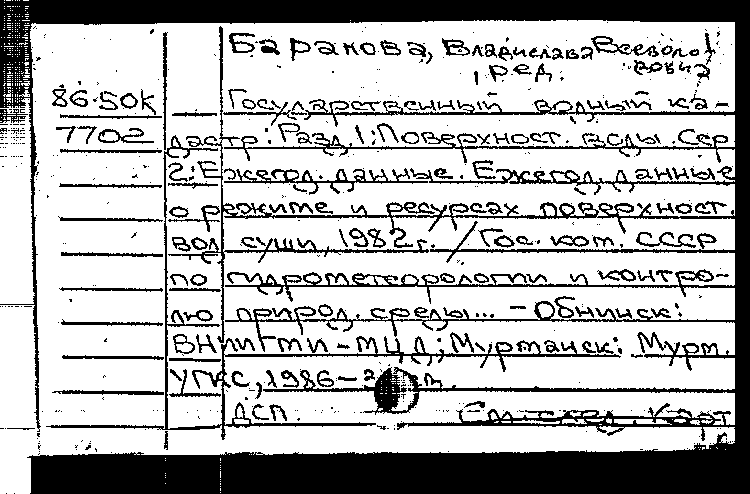 Баранова, Владислава Всеволо
довна
, ред.
86-50К Государственный водный ка-
7702 дастр: Разд. 1: Поверхност. воды. Сер
2: Ежегод. данные. Ежегод. данные
о режиме и ресурсах поверхност.
вод суши, 1982 г. / Гос. ком. СССР
по гидрометеорологии и контро-
лю природ. среды... – Обнинск:
ВНИИГМИ-МЦД; Мурманск: Мурм.
УГКС, 1986 –
ДСП. См. след. карт